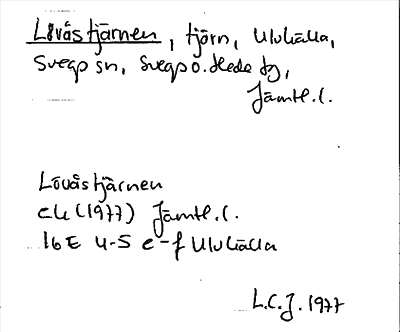 Lövåstjärnen, tjärn, Ulvkälla,
Svegs sn, Svegs o. Hede tg,
Jämtl. l.
Lövåstjärnen
ek (1977) Jämtl. l.
16E 4-5 e-f Ulvkälla
L.C.J. 1977